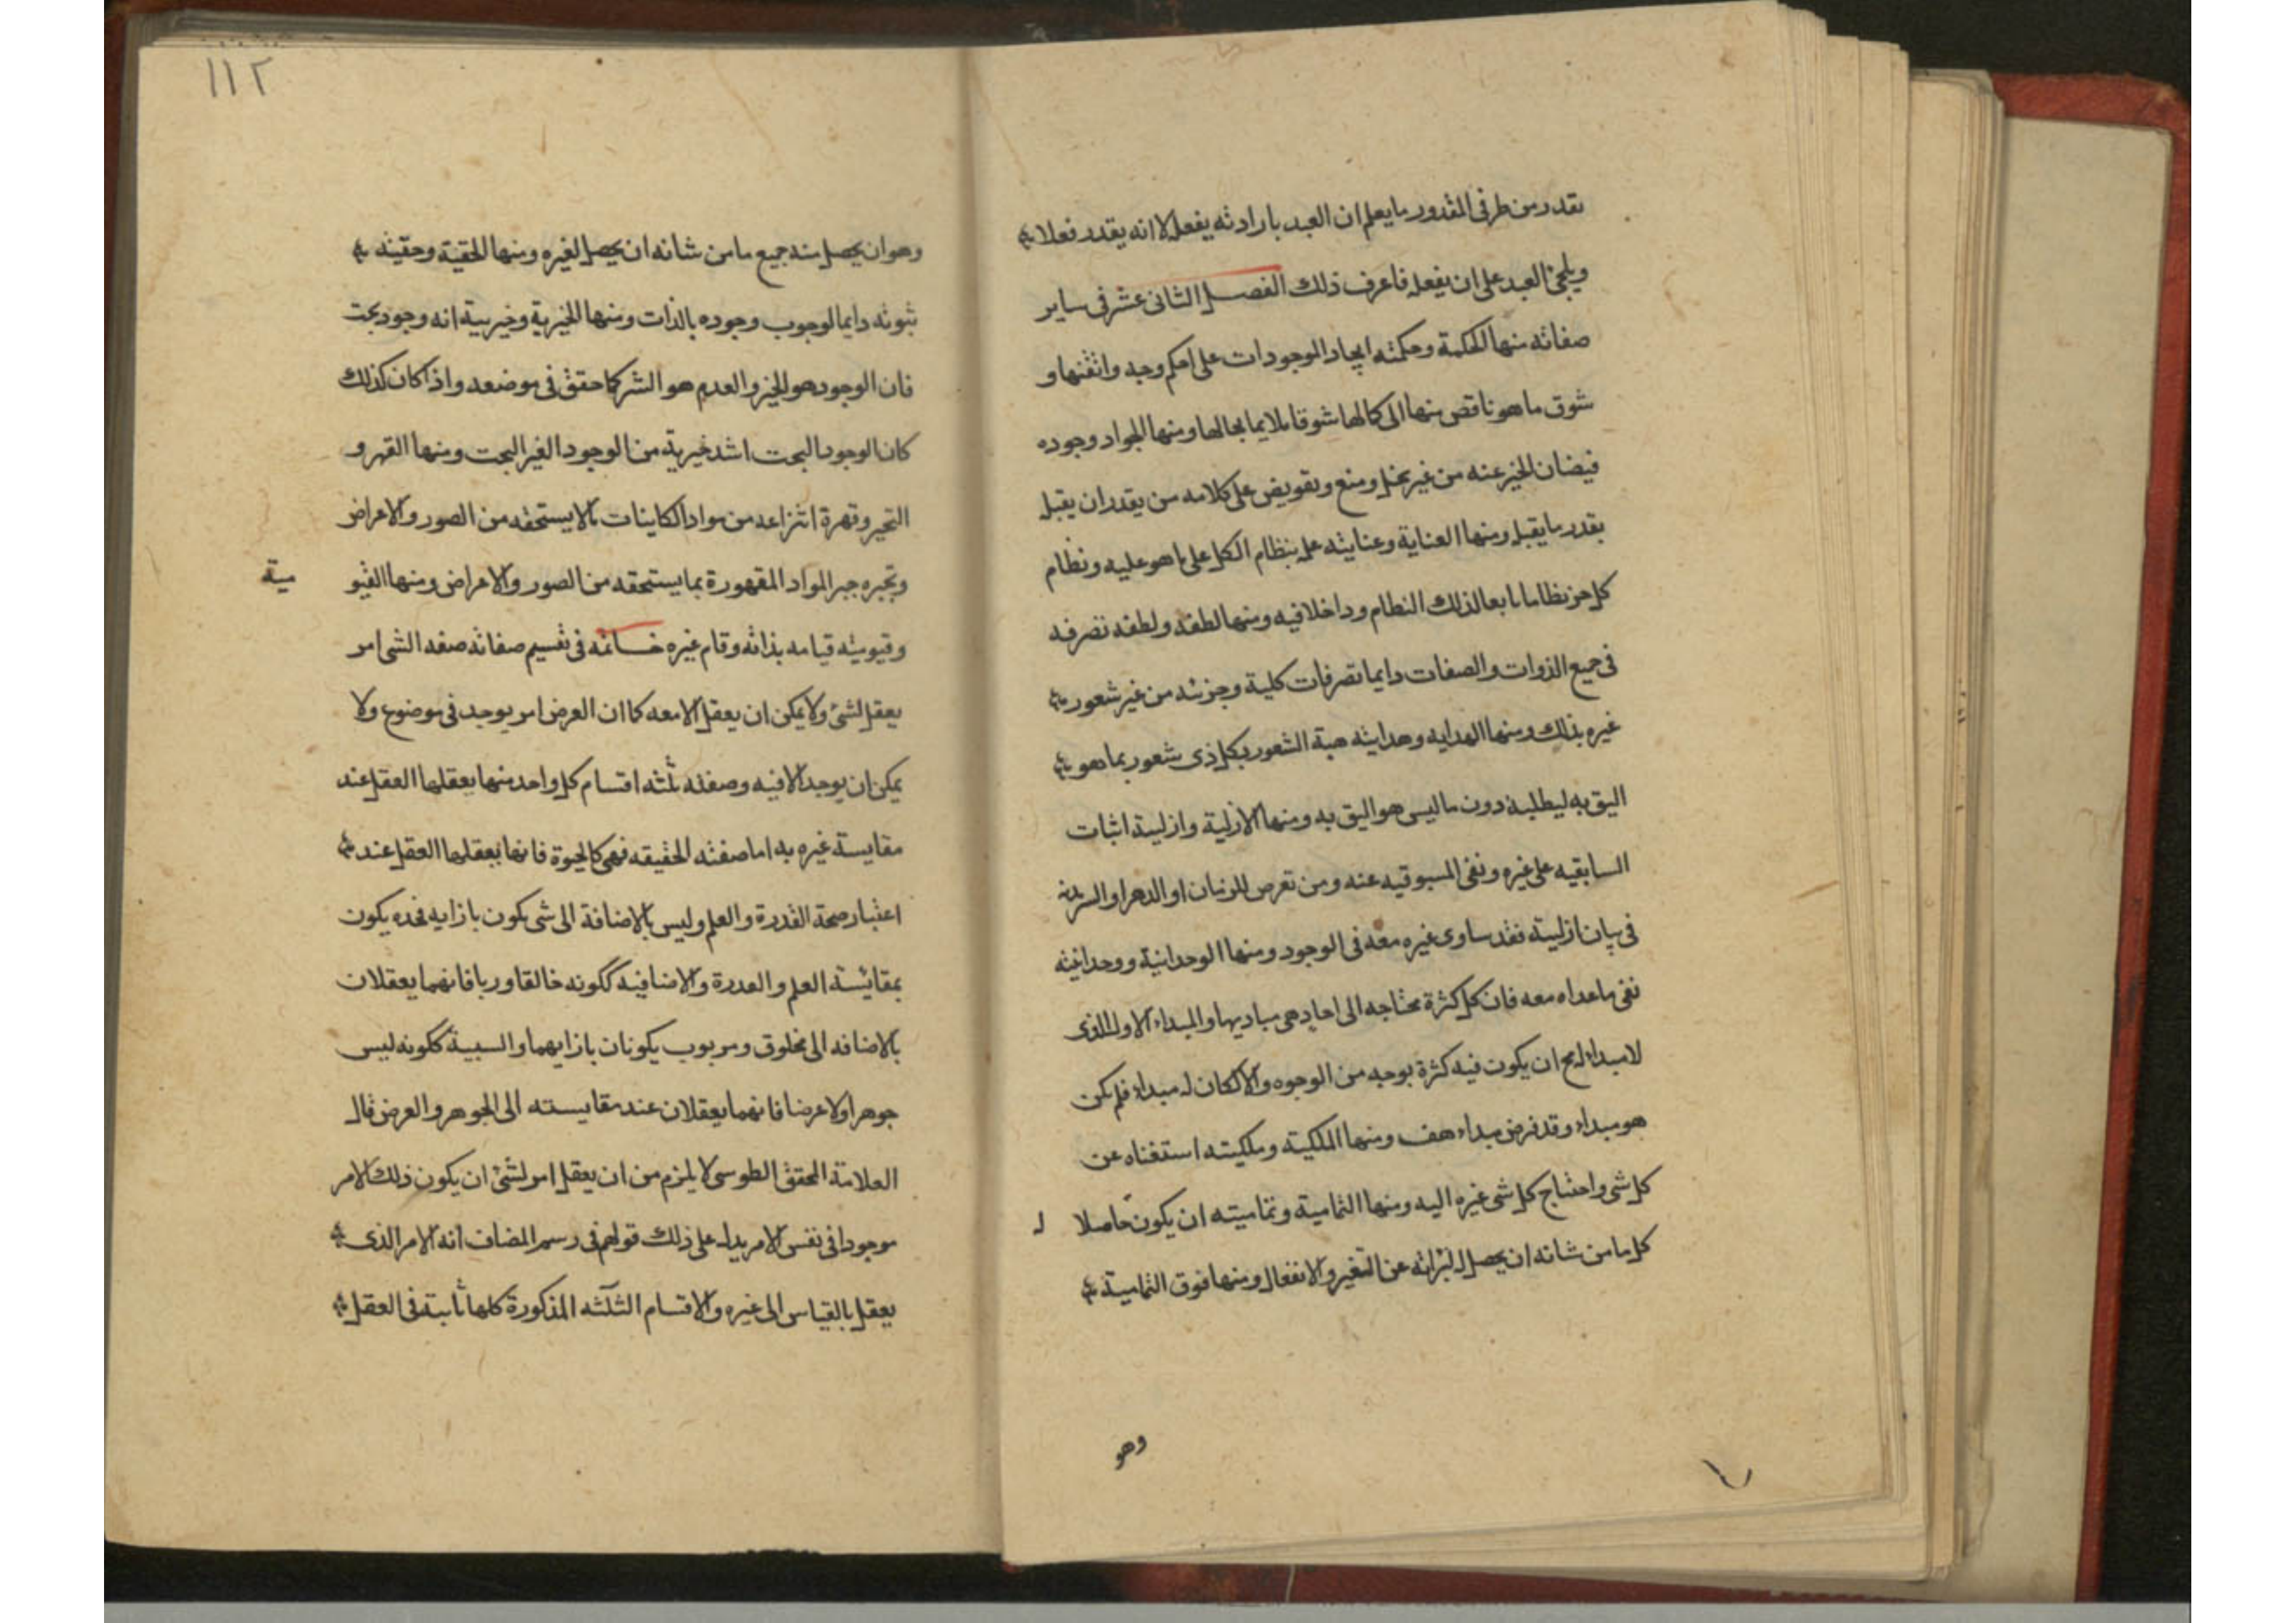 بقدر من طرفى المقدور ما يعلم ان العبد بارادته يفعله لا انه يقدر فعلا
ويلجئ العبد على ان يفعله فاعرف ذلك الفصل الثانى عشر فى ساير
صفاته منها الحكمة وحكمته ايجاد الموجودات على احكم وجه واتقنها و
شوق ما هو ناقص منها الى كمالها شوقا ملايما بحالها ومنها الجواد وجوده
فيضان الخير عنه من غير بخل ومنع وتعويض على كلامه من يقدر ان يقبل
بقدر ما يقبل ومنها العناية وعنايته علمه بنظام الكل على ما هو عليه ونظام
كل جز نظاما تابعا لذلك النظام وداخلا فيه ومنها لطفه ولطفه تصرفه
فى جميع الذوات والصفات دايما تصرفات كلية وجزئه من غير شعور
غيره بذلك ومنها الهدايه وهدايته هبة الشعور بكل ذى شعور بما هو
اليق به ليطلبه دون ما ليس هو اليق به ومنها الازلية وازليته اثبات
السابقيه على غيره ونفى المسبوقيه عنه ومن تعرض للزمان او الدهر او السرمد
فى بيان ازليته فقد ساوى غيره معه فى الوجود ومنها الوحدانية ووحدانيته
نفى ما عداه معه فان كل كثرة محتاجه الى احاد هى مباديها والمبداء الاول الذى
لا مبداء له مح ان يكون فيه كثرة بوجه من الوجوه والا لكان له مبداء فلم يكن
هو مبداء وقد فرض مبداء هف ومنها الملكيته وملكيته استغناه عن
كل شى واحتياج كل شى غيره اليه ومنها التمامية وتماميته ان يكون حاصلا له
كل ما من شانه ان يحصل له لبرائه عن التغير والانفعال ومنها فوق التمامية
وهو
١١٢
وهو ان يحصل منه جميع ما من شانه ان يحصل لغيره ومنها الحقية وحقيته
ثبوته دايما لوجوب وجوده بالذات ومنها الخيرية وخيريته انه وجود بحت
فان الوجود هو الخير والعدم هو الشر كما حقق فى موضعه واذا كان كذلك
كان الوجود البحت اشد خيرية من الوجود الغير البحت ومنها القهر و
التجبر وقهرة انتزاعه من مواد الكاينات ما لا يستحقه من الصور والاعراض
وتجبره جبر المواد المقهورة بما يستحقه من الصور والاعراض ومنها القيو مية
وقيوميته قيامه بذاته وقام غيره خاتمه فى تقسيم صفاته صفه الشى امر
يعقل لشئ ولا يمكن ان يعقل الا معه كما ان العرض امر يوجد فى موضوع ولا
يمكن ان يوجد الا فيه وصفته ثلثه اقسام كل واحد منها يعقلها العقل عند
مقايسة غيره به اما صفته الحقيقه فهى كالحيوة فانها يعقلها العقل عند
اعتبار صحة القدرة والعلم وليس بالاضافة الى شى يكون بازايه فحده يكون
بمقائسة العلم والقدرة والاضافيه ككونه خالقا وربا فانهما يعقلان
بالاضافه الى مخلوق ومربوب يكونان بازايهما والسلبية ككونه ليس
جوهرا ولا عرضا فانهما يعقلان عند مقايسته الى الجوهر والعرض قال
العلامة المحقق الطوسى لا يلزم من ان يعقل امر لشئ ان يكون ذلك الامر
موجودا فى نفس الامر يدل على ذلك قولهم فى رسم المضاف انه الامر الذى
يعقل بالقياس الى غيره والاقسام الثلثه المذكورة كلها ثابته فى العقل